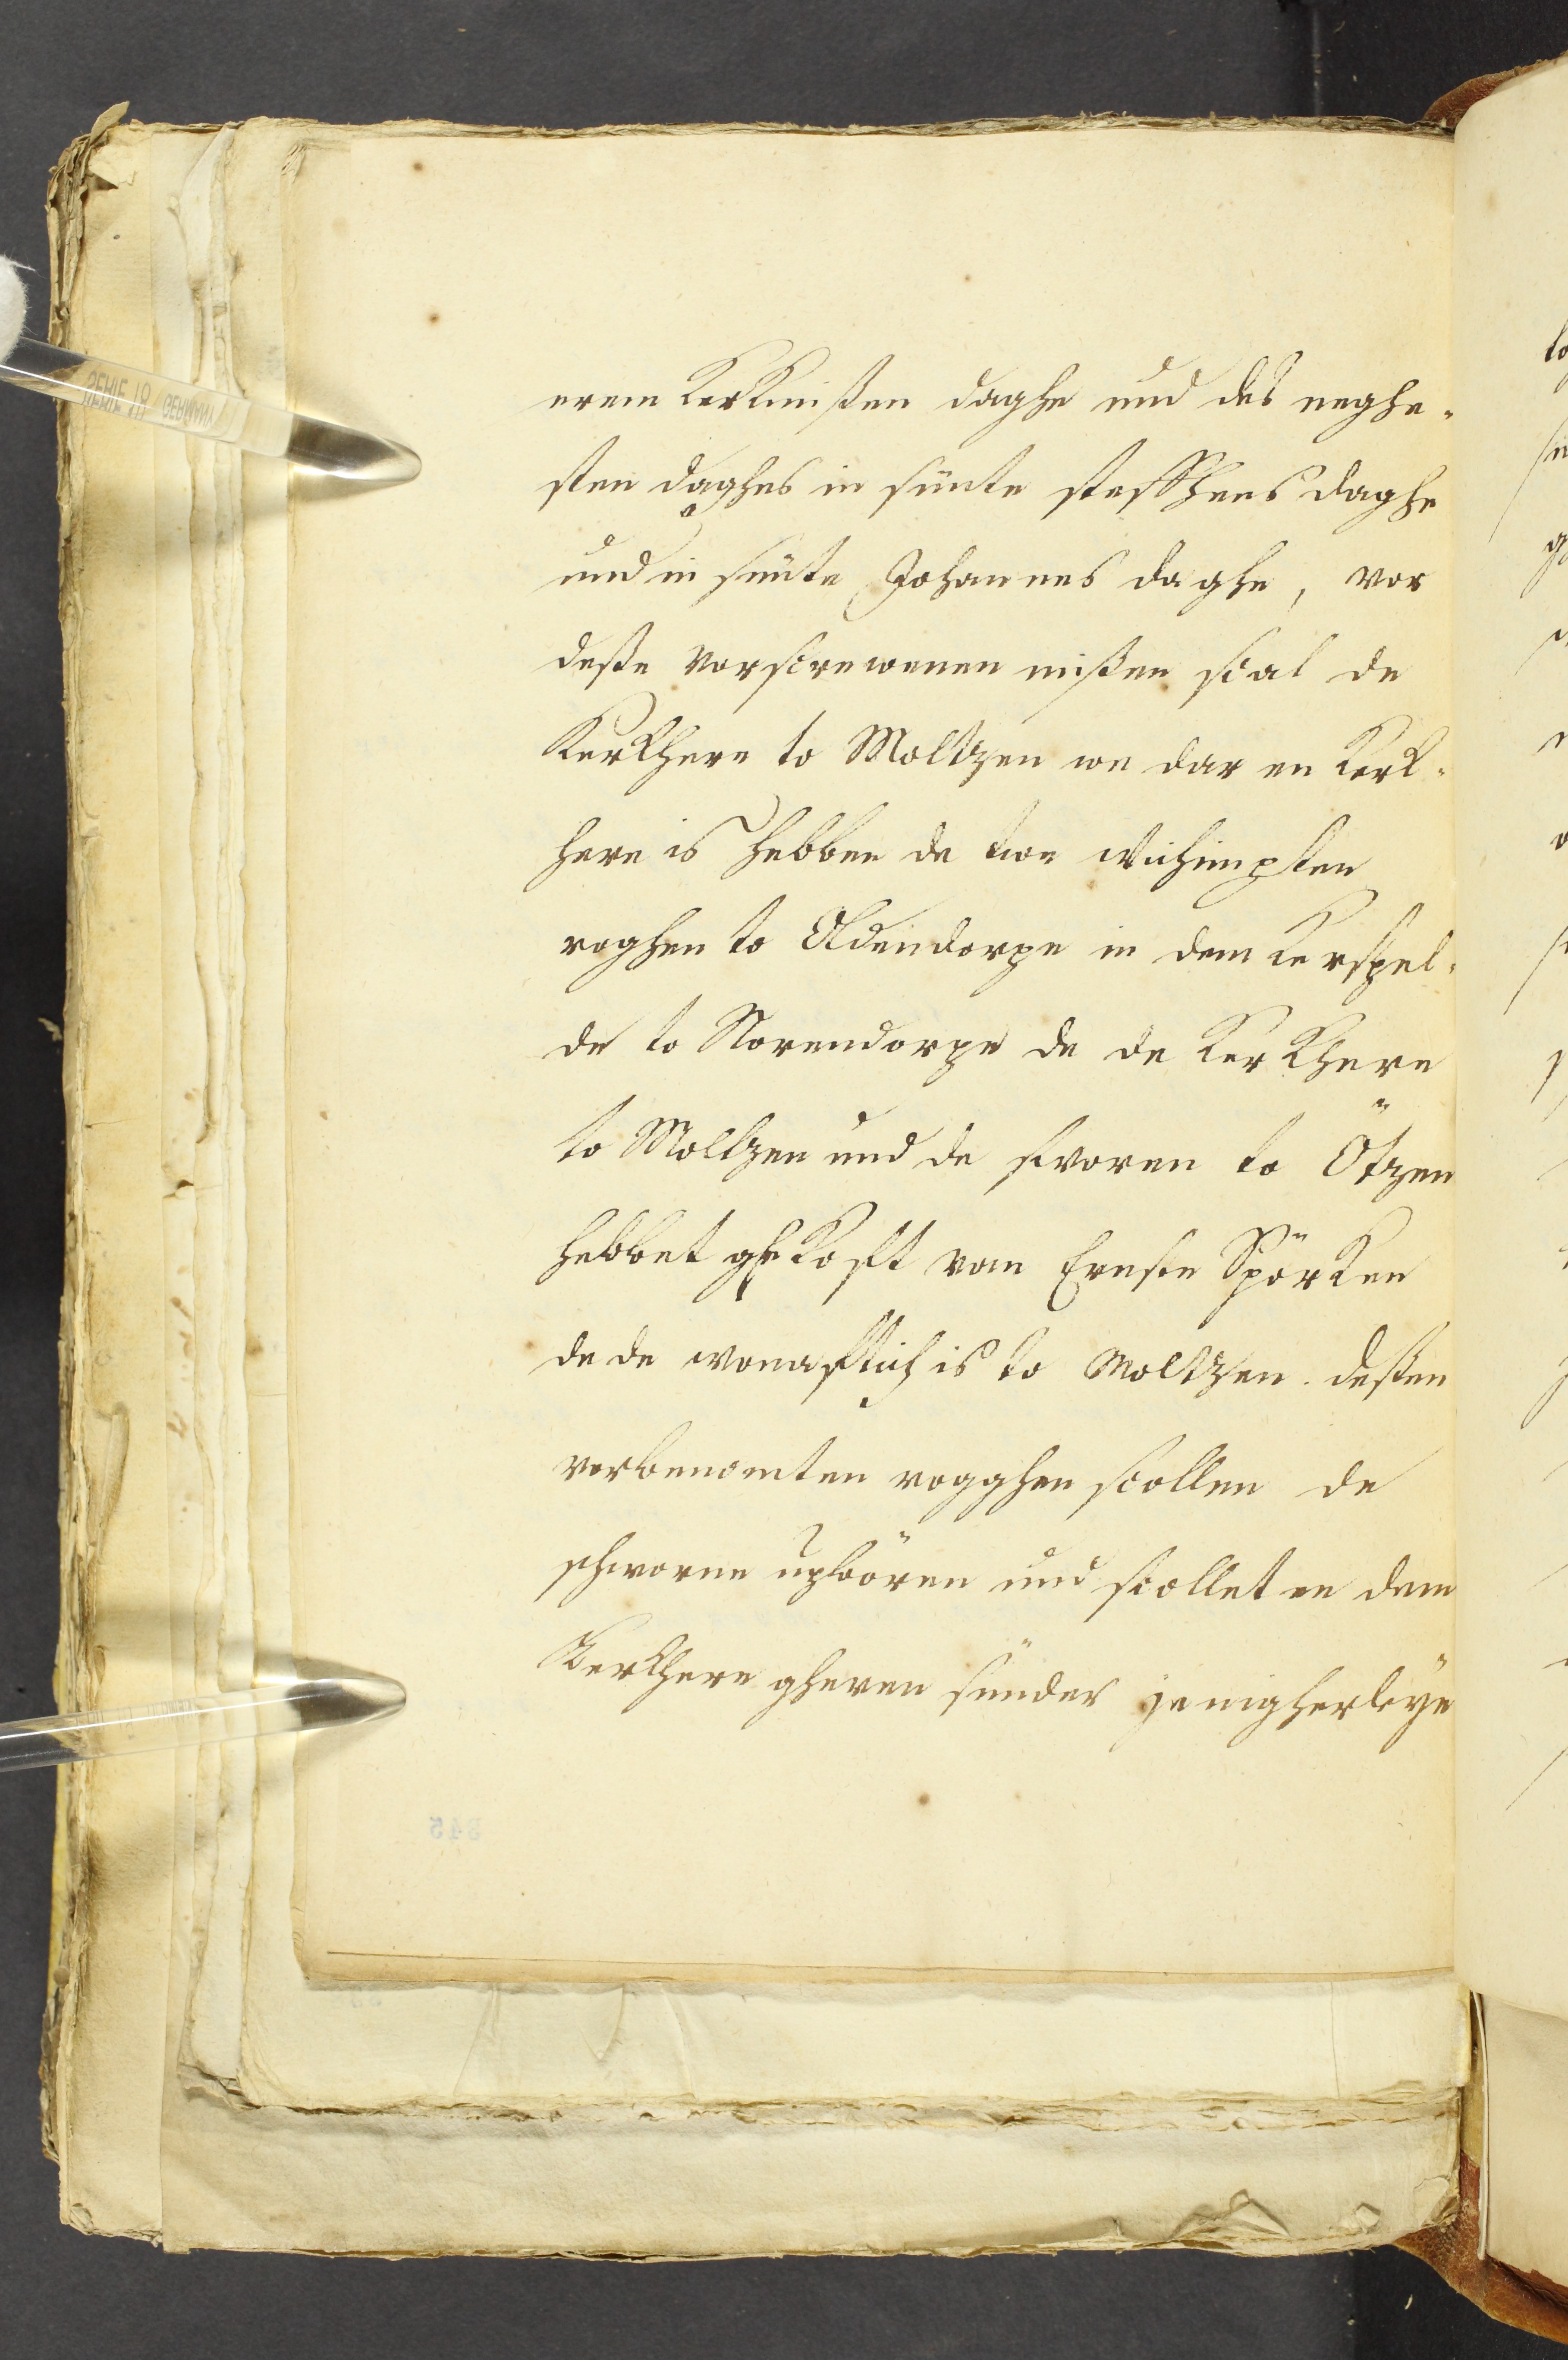 erem Kerkmißen daghe und des neghe-
sten daghes in sünte steffhens daghe
und in sünte Johannes daghe, vor
deße vorscrewenen mißen scal de
Kerkhere to Moltzen we dar en Kerk-
here is hebben de twe wichimpten
roghen to Oldendorpe in dem Kerspel-
de to Norendorpe de de Kerkhere
to Moltzen und de svoren to Ötzen
hebbet ghekoft van Ernste Spörken
de de wonaftich is to Moltzen. deßen
verbenomten rogghen scollen de
schworne upbören und scollet en dem
Kerkhere gheven sünder jenigherleye